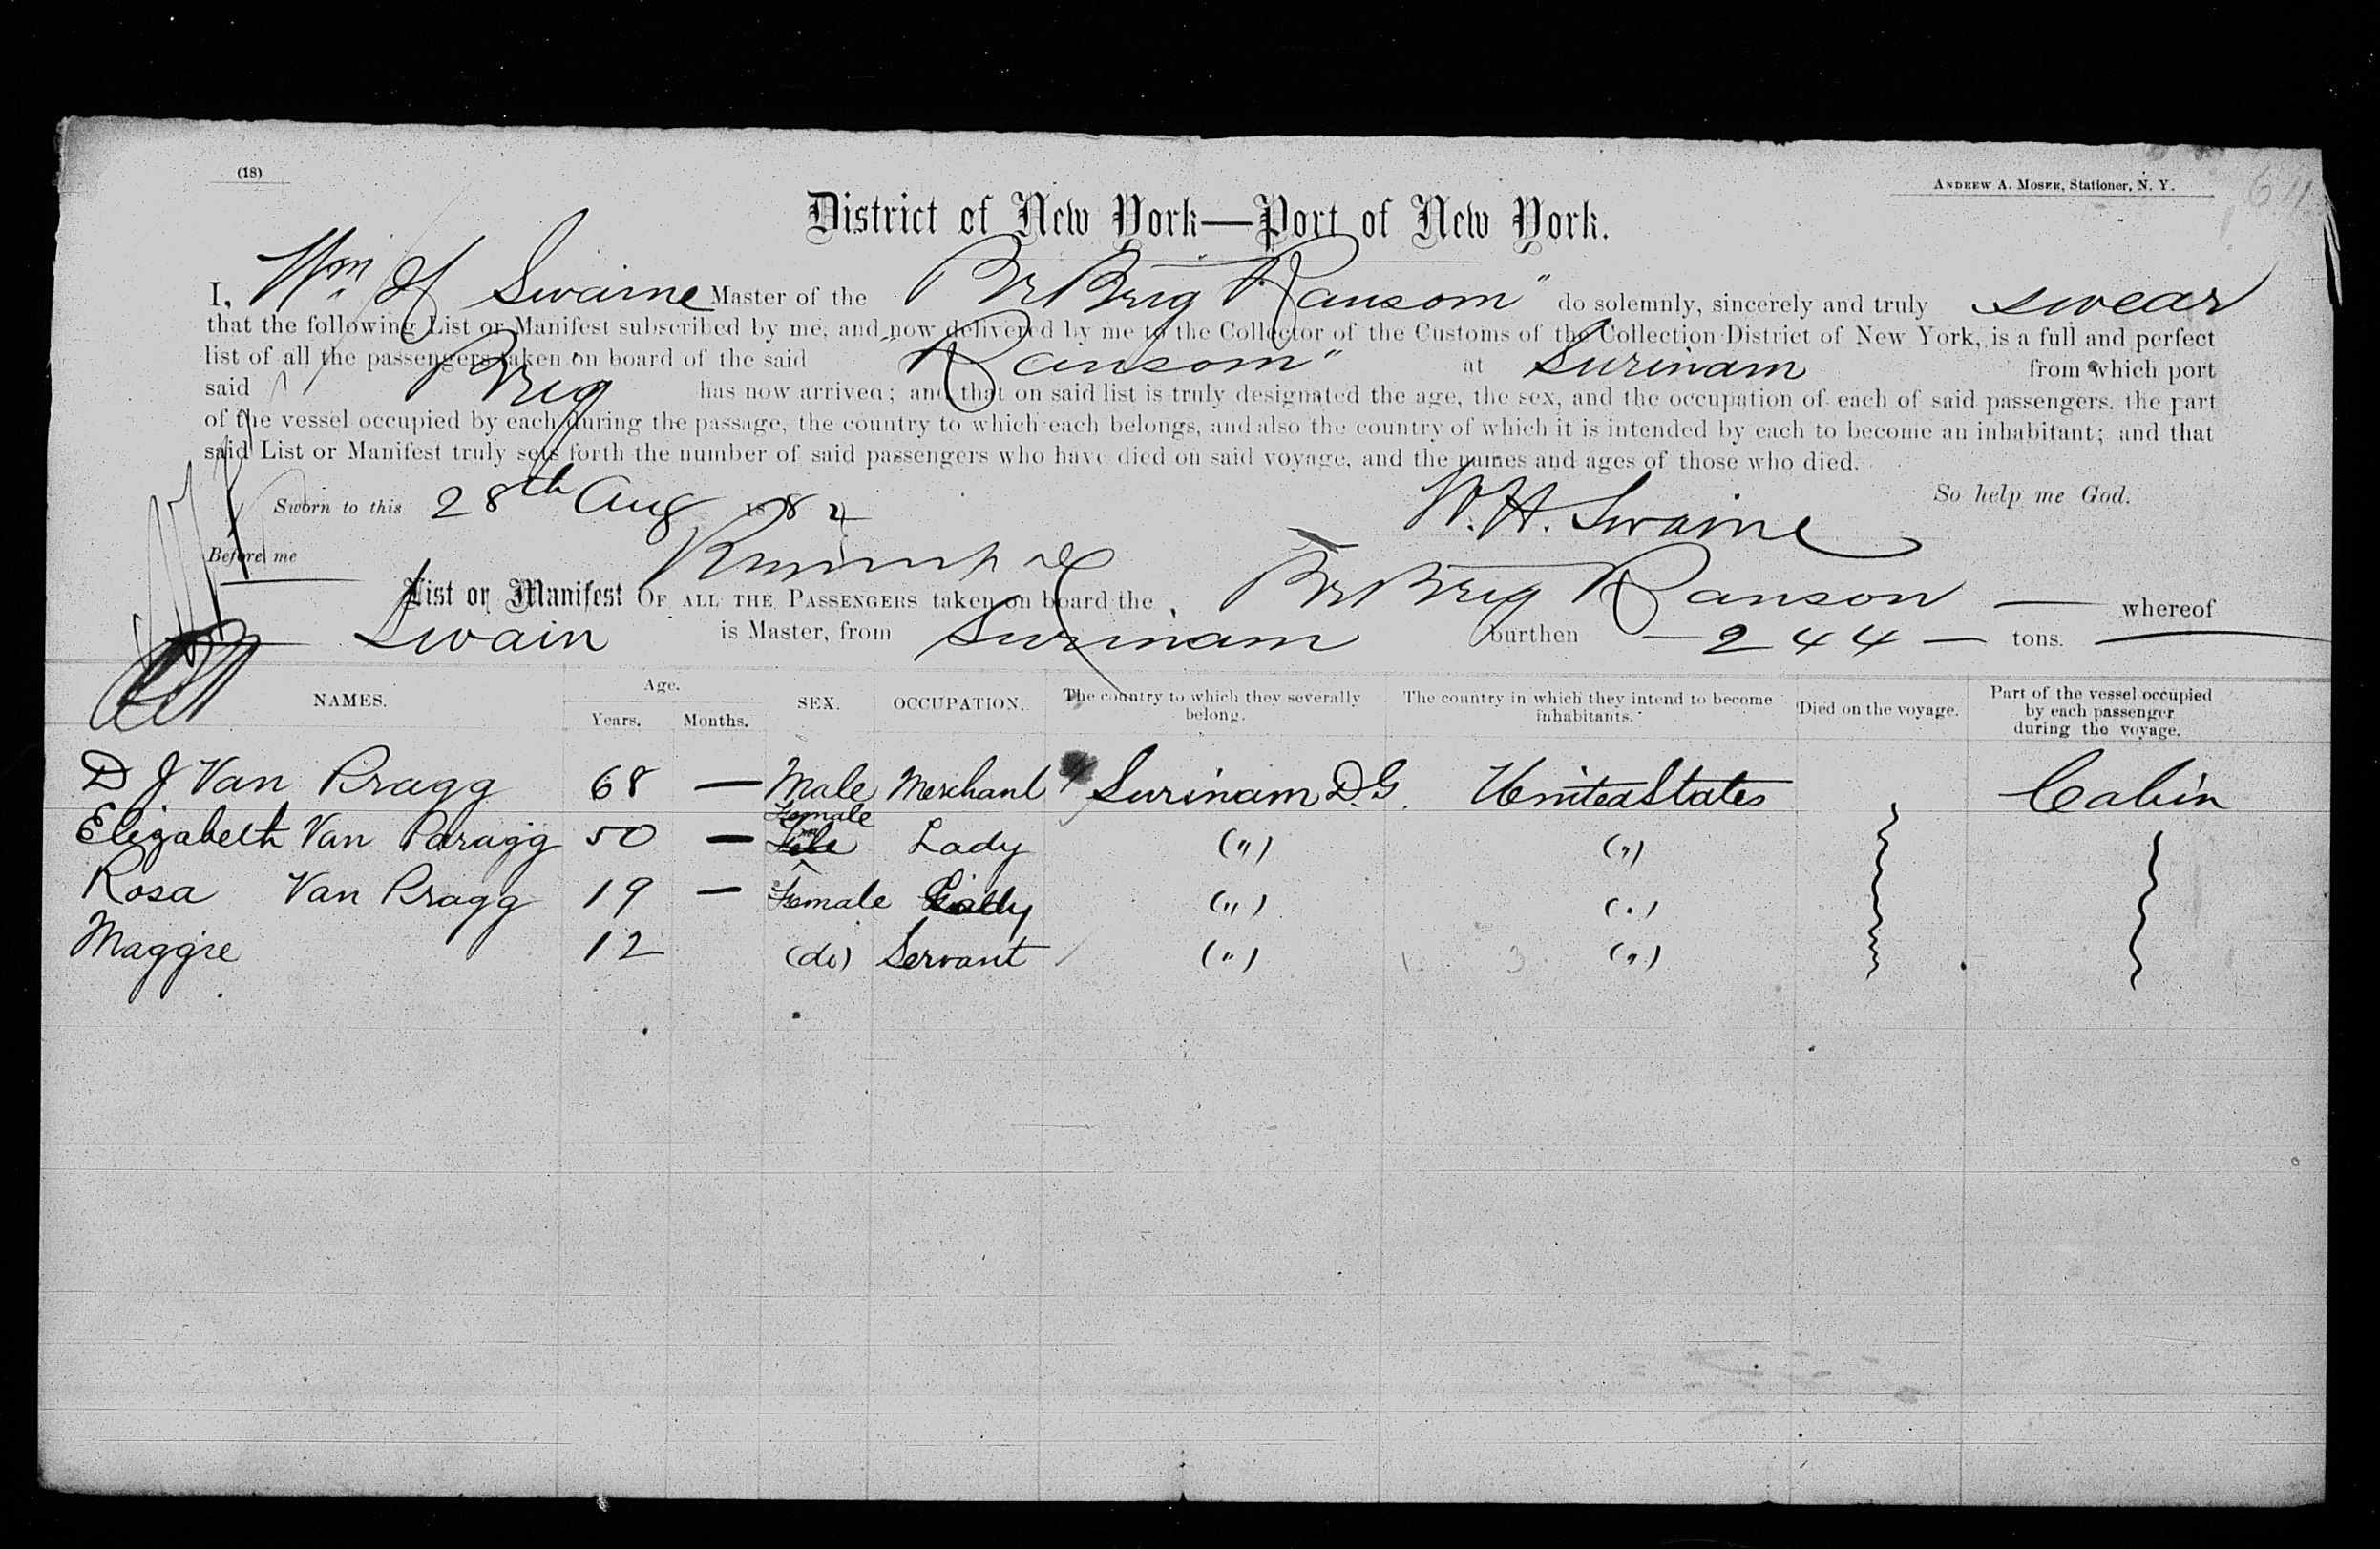 (18)
ANDREW A. MOSER, Stationer, N. Y.
District of New York—Port of New York.
I, Wm H Swaine Master of the Br Brig Ransom" do solemnly, sincerely and truly swear
that the following List or Manifest subscribed by me, and now delivered by me to the Collector of the Customs of the Collection District of New York, is a full and perfect
list of all the passengers taken on board of the said "Ransom" at Surinam from which port
said Brig has now arrived; and that on said list is truly designated the age, the sex, and the occupation of each of said passengers. the part
of the vessel occupied by each during the passage, the country to which each belongs, and also the country of which it is intended by each to become an inhabitant; and that
said List or Manifest truly sets forth the number of said passengers who have died on said voyage, and the names and ages of those who died.
So help me God.
Sworn to this 28th Aug 1882 W. H. Swaine
Before me
List or Manifest OF ALL THE PASSENGERS taken on board the Br Brig Ranson — whereof
Swain is Master, from Surinam burthen — 244 — tons.
NAMES. Age. Years. Months. SEX. OCCUPATION. The country to which they severally belong. The country in which they intend to become inhabitants. Died on the voyage. Part of the vessel occupied by each passenger during the voyage.
D J Van Bragg 68 — Male Merchant Surinam D.G. United States Cabin
Elizabeth Van Paragg 50 — Female Lady (") (")
Rosa Van Bragg 19 — Female (") (")
Maggie 12 (do) Servant (") (")